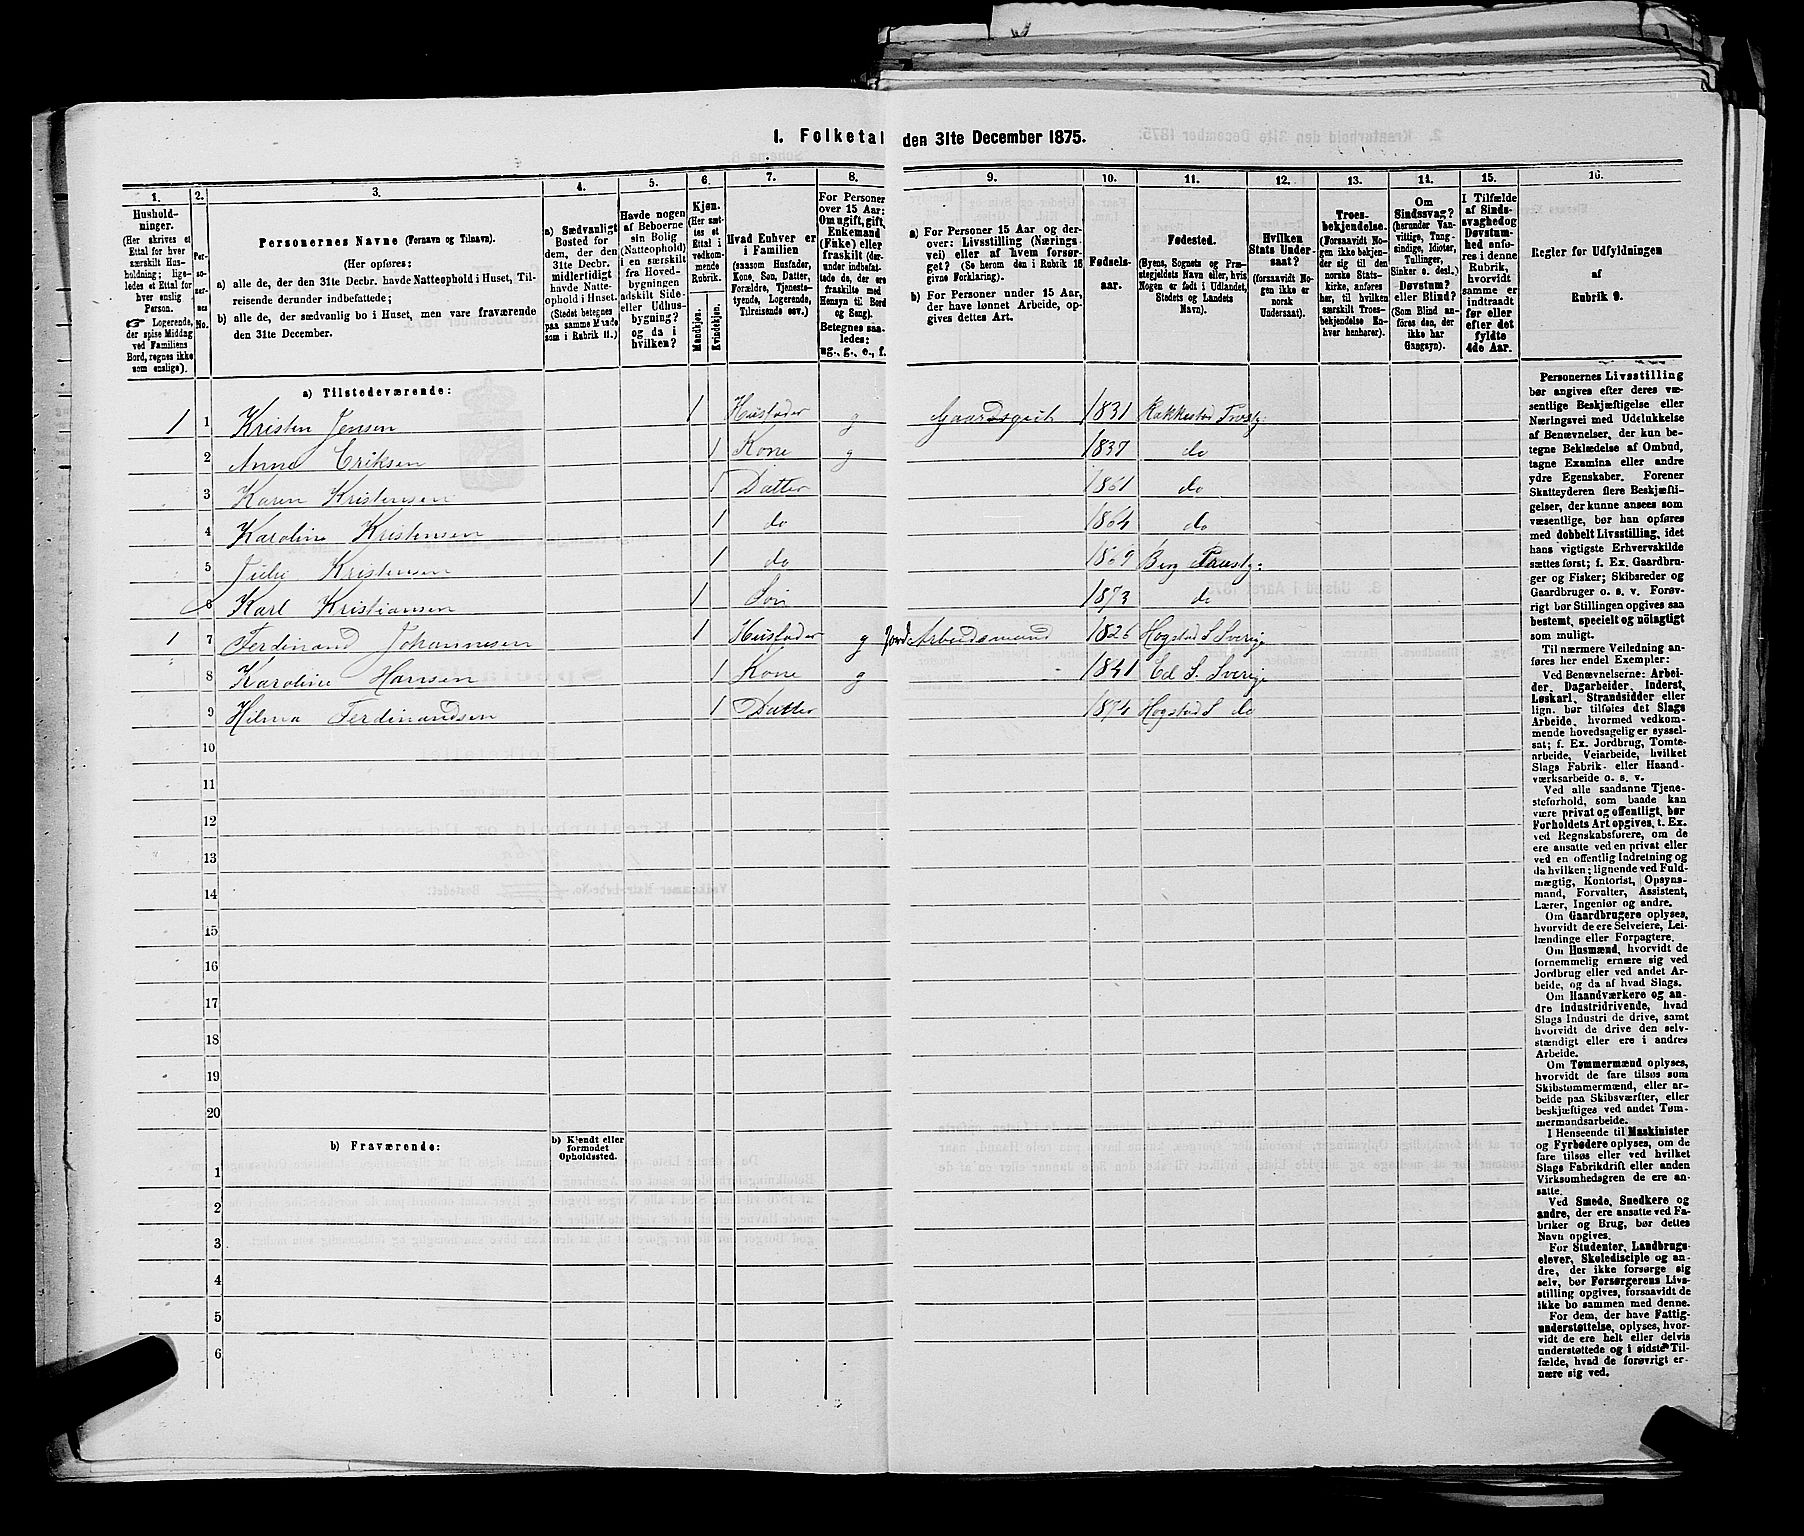 1. Folketal den 31te December 1875.
1. 2. 3. 4. 5. 6. 7. 8. 9. 10. 11. 12. 13. 14. 15. 16.
Hushold-
ninger.
(Her skrives et
Ettal for hver
særskilt Hus-
holdning; lige-
ledes et Ettal for
hver enslig
Person.
☞ Logerende,
der spise Middag
ved Familiens
Bord, regnes ikke
som enslige).
Per-
so-
ner-
nes
No.
Personernes Navne (Fornavn og Tilnavn).
(Her opføres:
a) alle de, der den 31te Decbr. havde Natteophold i Huset, Til-
reisende derunder indbefattede;
b) alle de, der sædvanlig bo i Huset, men vare fraværende
den 31te December.
a) Sædvanligt
Bosted for
dem, der den
31te Decbr.
midlertidigt
havde Natte-
ophold i Huset.
(Stedet betegnes
paa samme Maade
som i Rubrik 11.)
Havde nogen
af Beboerne
sin Bolig
(Natteophold)
i en særskilt
fra Hoved-
bygningen
adskilt Side-
eller Udhus-
bygning?
og da i
hvilken?
Kjøn.
(Her sæt-
tes et
Ettal i
vedkom-
mende
Rubrik.
Mandkjøn.
Kvindekjøn.
Hvad Enhver er
i Familien
(saasom Husfader,
Kone, Søn, Datter,
Forældre, Tjeneste-
tyende, Logerende,
Tilreisende osv.)
For Personer
over 15 Aar:
Om ugift, gift,
Enkemand
(Enke) eller
fraskilt (der-
under indbefat-
tede de, der ere
fraskilte med
Hensyn til Bord
og Seng).
Betegnes saa-
ledes:
ug., g., e., f.
a) For Personer 15 Aar og der-
over: Livsstilling (Nærings-
vei) eller af hvem forsør-
get? (Se herom den i Rubrik 16
givne Forklaring).
b) For Personer under 15 Aar,
der have lønnet Arbeide, op-
gives dettes Art.
Fødsels-
aar.
Fødested.
(Byens, Sognets og Præ-
stegjeldets Navn eller, hvis
Nogen er født i Udlandet,
Stedets og Landets
Navn).
Hvilken
Stats Under-
saat?
(forsaavidt No-
gen ikke er
norsk
Undersaat).
Troes-
bekjendelse.
(Forsaavidt No-
gen ikke bekjen-
der sig til den
norske Stats-
kirke, anføres
her, til hvilken
særskilt Troes-
bekjendelse En-
hver henhører).
Om
Sindssvag?
(herunder Van-
vittige, Tung-
sindige, Idioter,
Tullinger,
Sinker o. desl.)
Døvstum?
eller Blind?
(Som Blind an-
føres den, der
ikke har
Gangsyn).
I Tilfælde
af Sinds-
svaghed og
Døvstum-
hed anfø-
res i denne
Rubrik,
hvorvidt
samme er
indtraadt
før eller
efter det
fyldte
4de Aar.
Regler for Udfyldningen
af
Rubrik 9.
a) Tilstedeværende:
1 1 Kristen Jensen 1 Husfader g 1831
2 Anne Eriksen 1 Kone g 1837 do
3 Karen Kristensen 1 Datter 1861 do
4 Karoline Kristensen 1 do 1864 do
5 Julie Kristensen 1 do 1869 Berg
6 Karl Kristiansen 1 Søn 1873 do
1 7 Ferdinand Johannesen 1 Husfader g Jord Arbeidsmand 1826 Hogstad S. Sverige
8 Karoline Hansen 1 Kone g 1841 Ed S. Sverige
9 Hilma Ferdinandsen 1 Datter 1874 Hogstad S. do
10
11
12
13
14
15
16
17
18
19
20
b) Fraværende:
b) Kjendt eller
formodet
Opholdssted.
1
2
3
4
5
6
Personernes Livsstilling
bør angives efter deres væ-
sentlige Beskjæftigelse eller
Næringsvei med Udelukkelse
af Benævnelser, der kun be-
tegne Beklædelse af Ombud,
tagne Examina eller andre
ydre Egenskaber. Forener
Skatteyderen flere Beskjæfti-
gelser, der kunne ansees som
væsentlige, bør han opføres
med dobbelt Livsstilling, idet
hans vigtigste Erhvervskilde
sættes først; f. Ex. Gaardbru-
ger og Fisker; Skibsreder og
Gaardbruger o. s. v. Forøv-
rigt bør Stillingen opgives saa
bestemt, specielt og nøiagtigt
som muligt.
Til nærmere Veiledning an-
føres her endel Exempler:
Ved Benævnelserne: Arbei-
der, Dagarbeider, Inderst,
Løskarl, Strandsidder eller
lign. bør tilføies det Slags
Arbeide, hvormed vedkom-
mende hovedsagelig er syssel-
sat; f. Ex. Jordbrug, Tomte-
arbeide, Veiarbeide, hvilket
Slags Fabrik- eller Haand-
værksarbeide o. s. v.
Ved alle saadanne Tjene-
steforhold, som baade kan
være privat og offentligt, bør
Forholdets Art opgives, t. Ex.
ved Regnskabsførere, om de
ere ansatte ved en privat eller
ved en offentlig Indretning og
da hvilken; lignende ved Fuld-
mægtig, Kontorist, Opsyns-
mand, Forvalter, Assistent,
Lærer, Ingeniør og andre.
Om Gaardbrugere oplyses,
hvorvidt de ere Selveiere, Lei-
lændinge eller Forpagtere.
Om Husmænd, hvorvidt de
fornemmelig ernære sig ved
Jordbrug eller ved andet Ar-
beide, og da af hvad Slags.
Om Haandværkere og an-
dre Industridrivende, hvad
Slags Industri de drive, samt
hvorvidt de drive den selv-
stændigt eller ere i andres
Arbeide.
Om Tømmermænd oplyses,
hvorvidt de fare tilsøs som
Skibstømmermænd, eller ar-
beide paa Skibsværfter, eller
beskjæftiges ved andet Tøm-
mermandsarbeide.
I Henseende til Maskinister
og Fyrbødere oplyses, om de
fare tilsøs eller ved hvilket
Slags Fabrikdrift eller anden
Virksomhedsgren de ere an-
satte.
Ved Smede, Snedkere og
andre, der ere ansatte ved Fa-
briker og Brug, bør dettes
Navn opgives.
For Studenter, Landbrugs-
elever, Skoledisciple og an-
dre, der ikke forsørge sig
selv, bør Forsørgerens Livs-
stilling opgives, forsaavidt de
ikke bo sammen med denne.
For dem, der have Fattig-
understøttelse, oplyses, hvor-
vidt de ere helt eller delvis
understøttede og i sidste Til-
fælde, hvad de forøvrigt er-
nære sig ved.